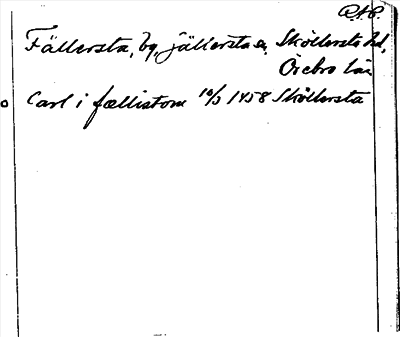 R.A.P.
Fällersta, by, fällersta sn, Sköllersta hd,
Örebro län
Carl i fællistom 10/3 1458 Sköllersta